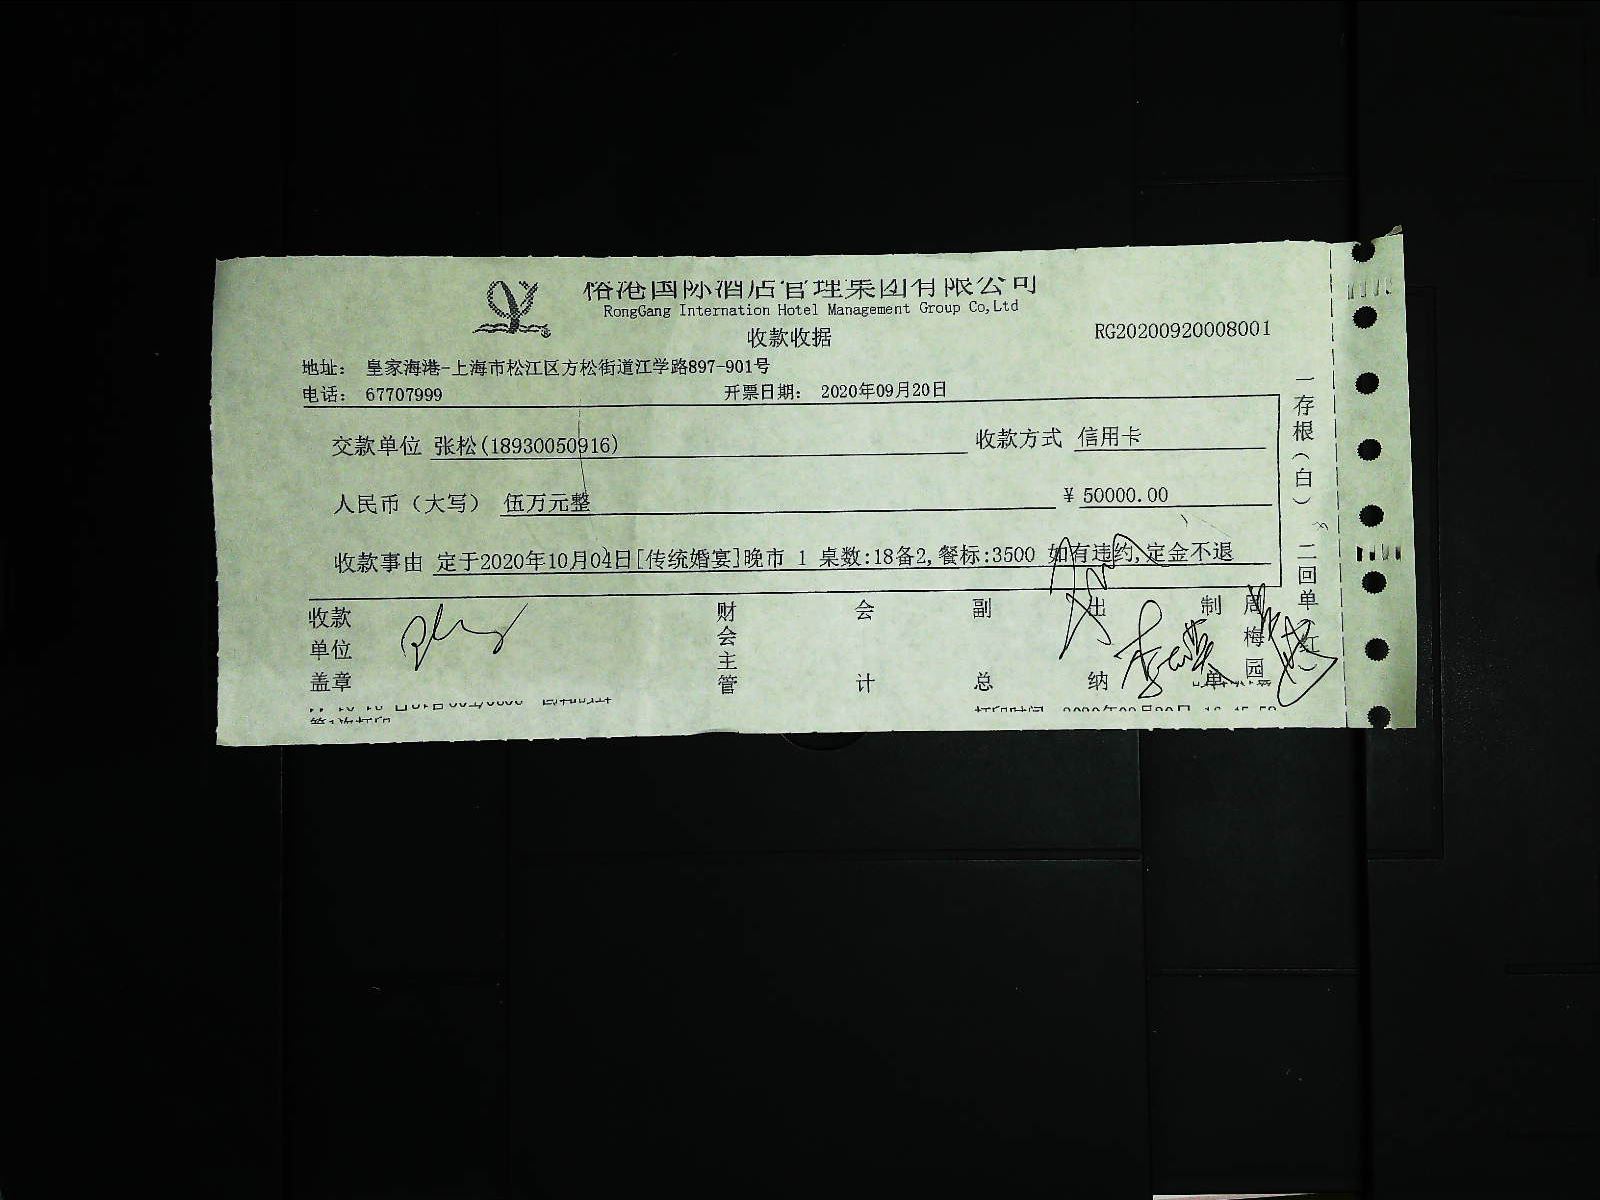 国际酒店管理集团有限公司
RongGang Internation Hotel Management Group Co,Ltd
收款收据
RG20200920008001
地址： 皇家海港-上海市松江区方松街道江学路897-901号
电话： 67707999 开票日期： 2020年09月20日
交款单位 张松(18930050916) 收款方式 信用卡
人民币（大写） 伍万元整 ￥50000.00
收款事由 定于2020年10月04日[传统婚宴]晚市 1 桌数:18备2,餐标:3500 如有违约,定金不退
收款单位盖章 财会主管 会计 副总 出纳 制单 周梅园
一存根（白） 二回单（红
第1次打印
打印时间 2020年09月20日